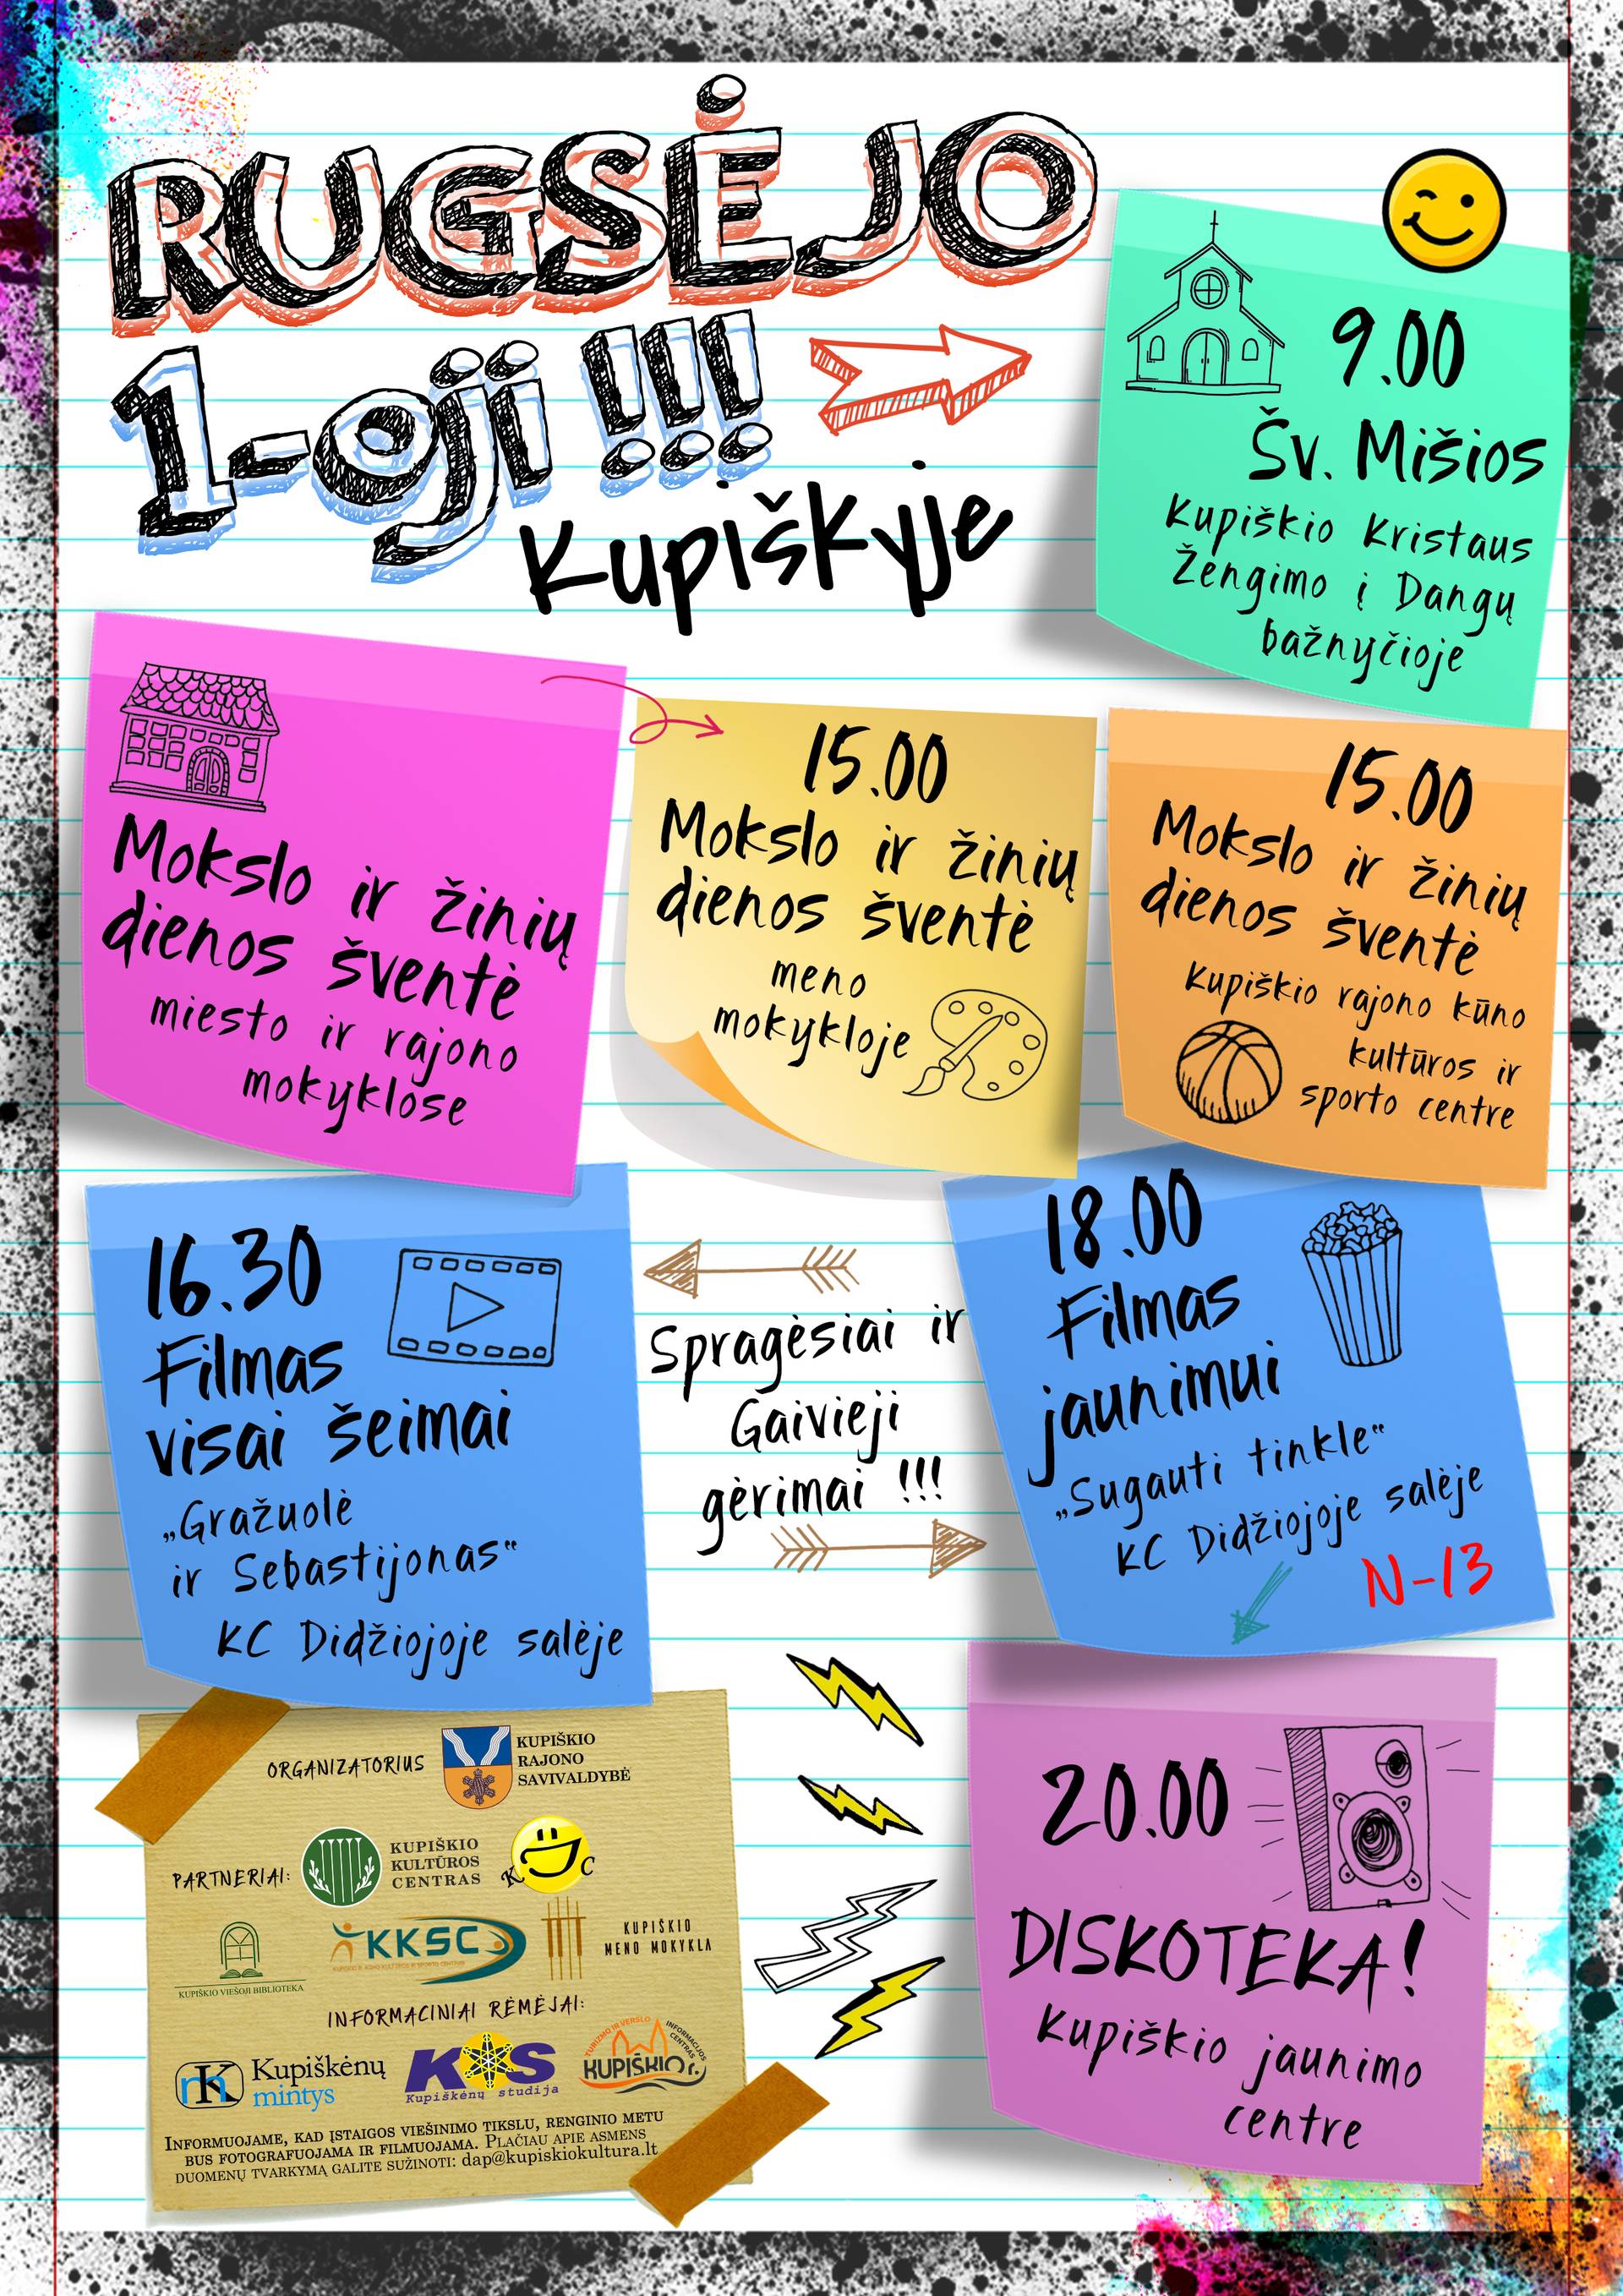 RUGSĖJO
1-oji !!!
Kupiškyje
9.00
Šv. Mišios
Kupiškio Kristaus
Žengimo į Dangų
bažnyčioje
Mokslo ir žinių
dienos šventė
miesto ir rajono
mokyklose
15.00
Mokslo ir žinių
dienos šventė
meno
mokykloje
15.00
Mokslo ir žinių
dienos šventė
Kupiškio rajono kūno
kultūros ir
sporto centre
16.30
Filmas
visai šeimai
„Gražuolė
ir Sebastijonas“
KC Didžiojoje salėje
Spragėsiai ir
Gaivieji
gėrimai !!!
18.00
Filmas
jaunimui
„Sugauti tinkle“
KC Didžiojoje salėje
N-13
20.00
DISKOTEKA!
Kupiškio jaunimo
centre
ORGANIZATORIUS
KUPIŠKIO
RAJONO
SAVIVALDYBĖ
PARTNERIAI:
KUPIŠKIO
KULTŪROS
CENTRAS
K C
KUPIŠKIO VIEŠOJI BIBLIOTEKA
KKSC
KUPIŠKIO
MENO MOKYKLA
INFORMACINIAI RĖMĖJAI:
mK Kupiškėnų
mintys
KS
Kupiškėnų studija
TURIZMO IR VERSLO INFORMACIJOS CENTRAS
KUPIŠKIO r.
INFORMUOJAME, KAD ĮSTAIGOS VIEŠINIMO TIKSLU, RENGINIO METU
BUS FOTOGRAFUOJAMA IR FILMUOJAMA. PLAČIAU APIE ASMENS
DUOMENŲ TVARKYMĄ GALITE SUŽINOTI: dap@kupiskiokultura.lt